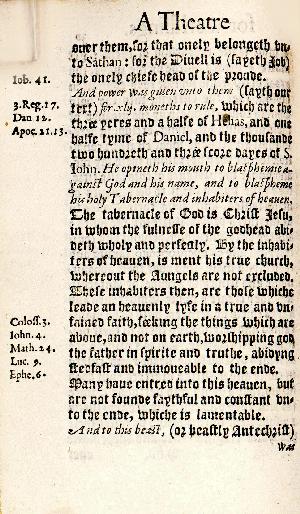 A Theatre
ouer them, for that onely belongeth vn-
to Sathan: for the Diuell is (sayeth Job)
Iob. 41.
the onely chiefe head of the proude.
And power was giuen vnto them (sayth our
3.Reg.17.
ter) for xlij. moneths to rule, which are the
Dan 12.
three yeres and a halfe of Helias, and one
Apoc. 21.13.
halfe tyme of Daniel, and the thousande
two hundreth and three score dayes of S.
John. He openeth his mouth to blasphemie a-
gainst God and his name, and to blaspheme
his holy Tabernacle and inhabiters of heauen.
The tabernacle of God is Christ Jesu,
in whom the fulnesse of the godhead abi-
deth wholy and perfectly. By the inhabi-
ters of heauen, is ment his true church,
whereout the Aungels are not excluded.
These inhabiters then, are those whiche
leade an heauenly lyfe in a true and vn-
Coloss.3.
fained faith, seeking the things which are
Iohn. 4.
aboue, and not on earth, worshipping god
Math. 24.
the father in spirite and truthe, abidyng
Luc. 9.
stedfast and immoueable to the ende.
Ephe. 6.
Many haue entred into this heauen, but
are not founde faythful and constant vn-
to the ende, whiche is lamentable.
And to this beast, (or beastly Antechrist)
was